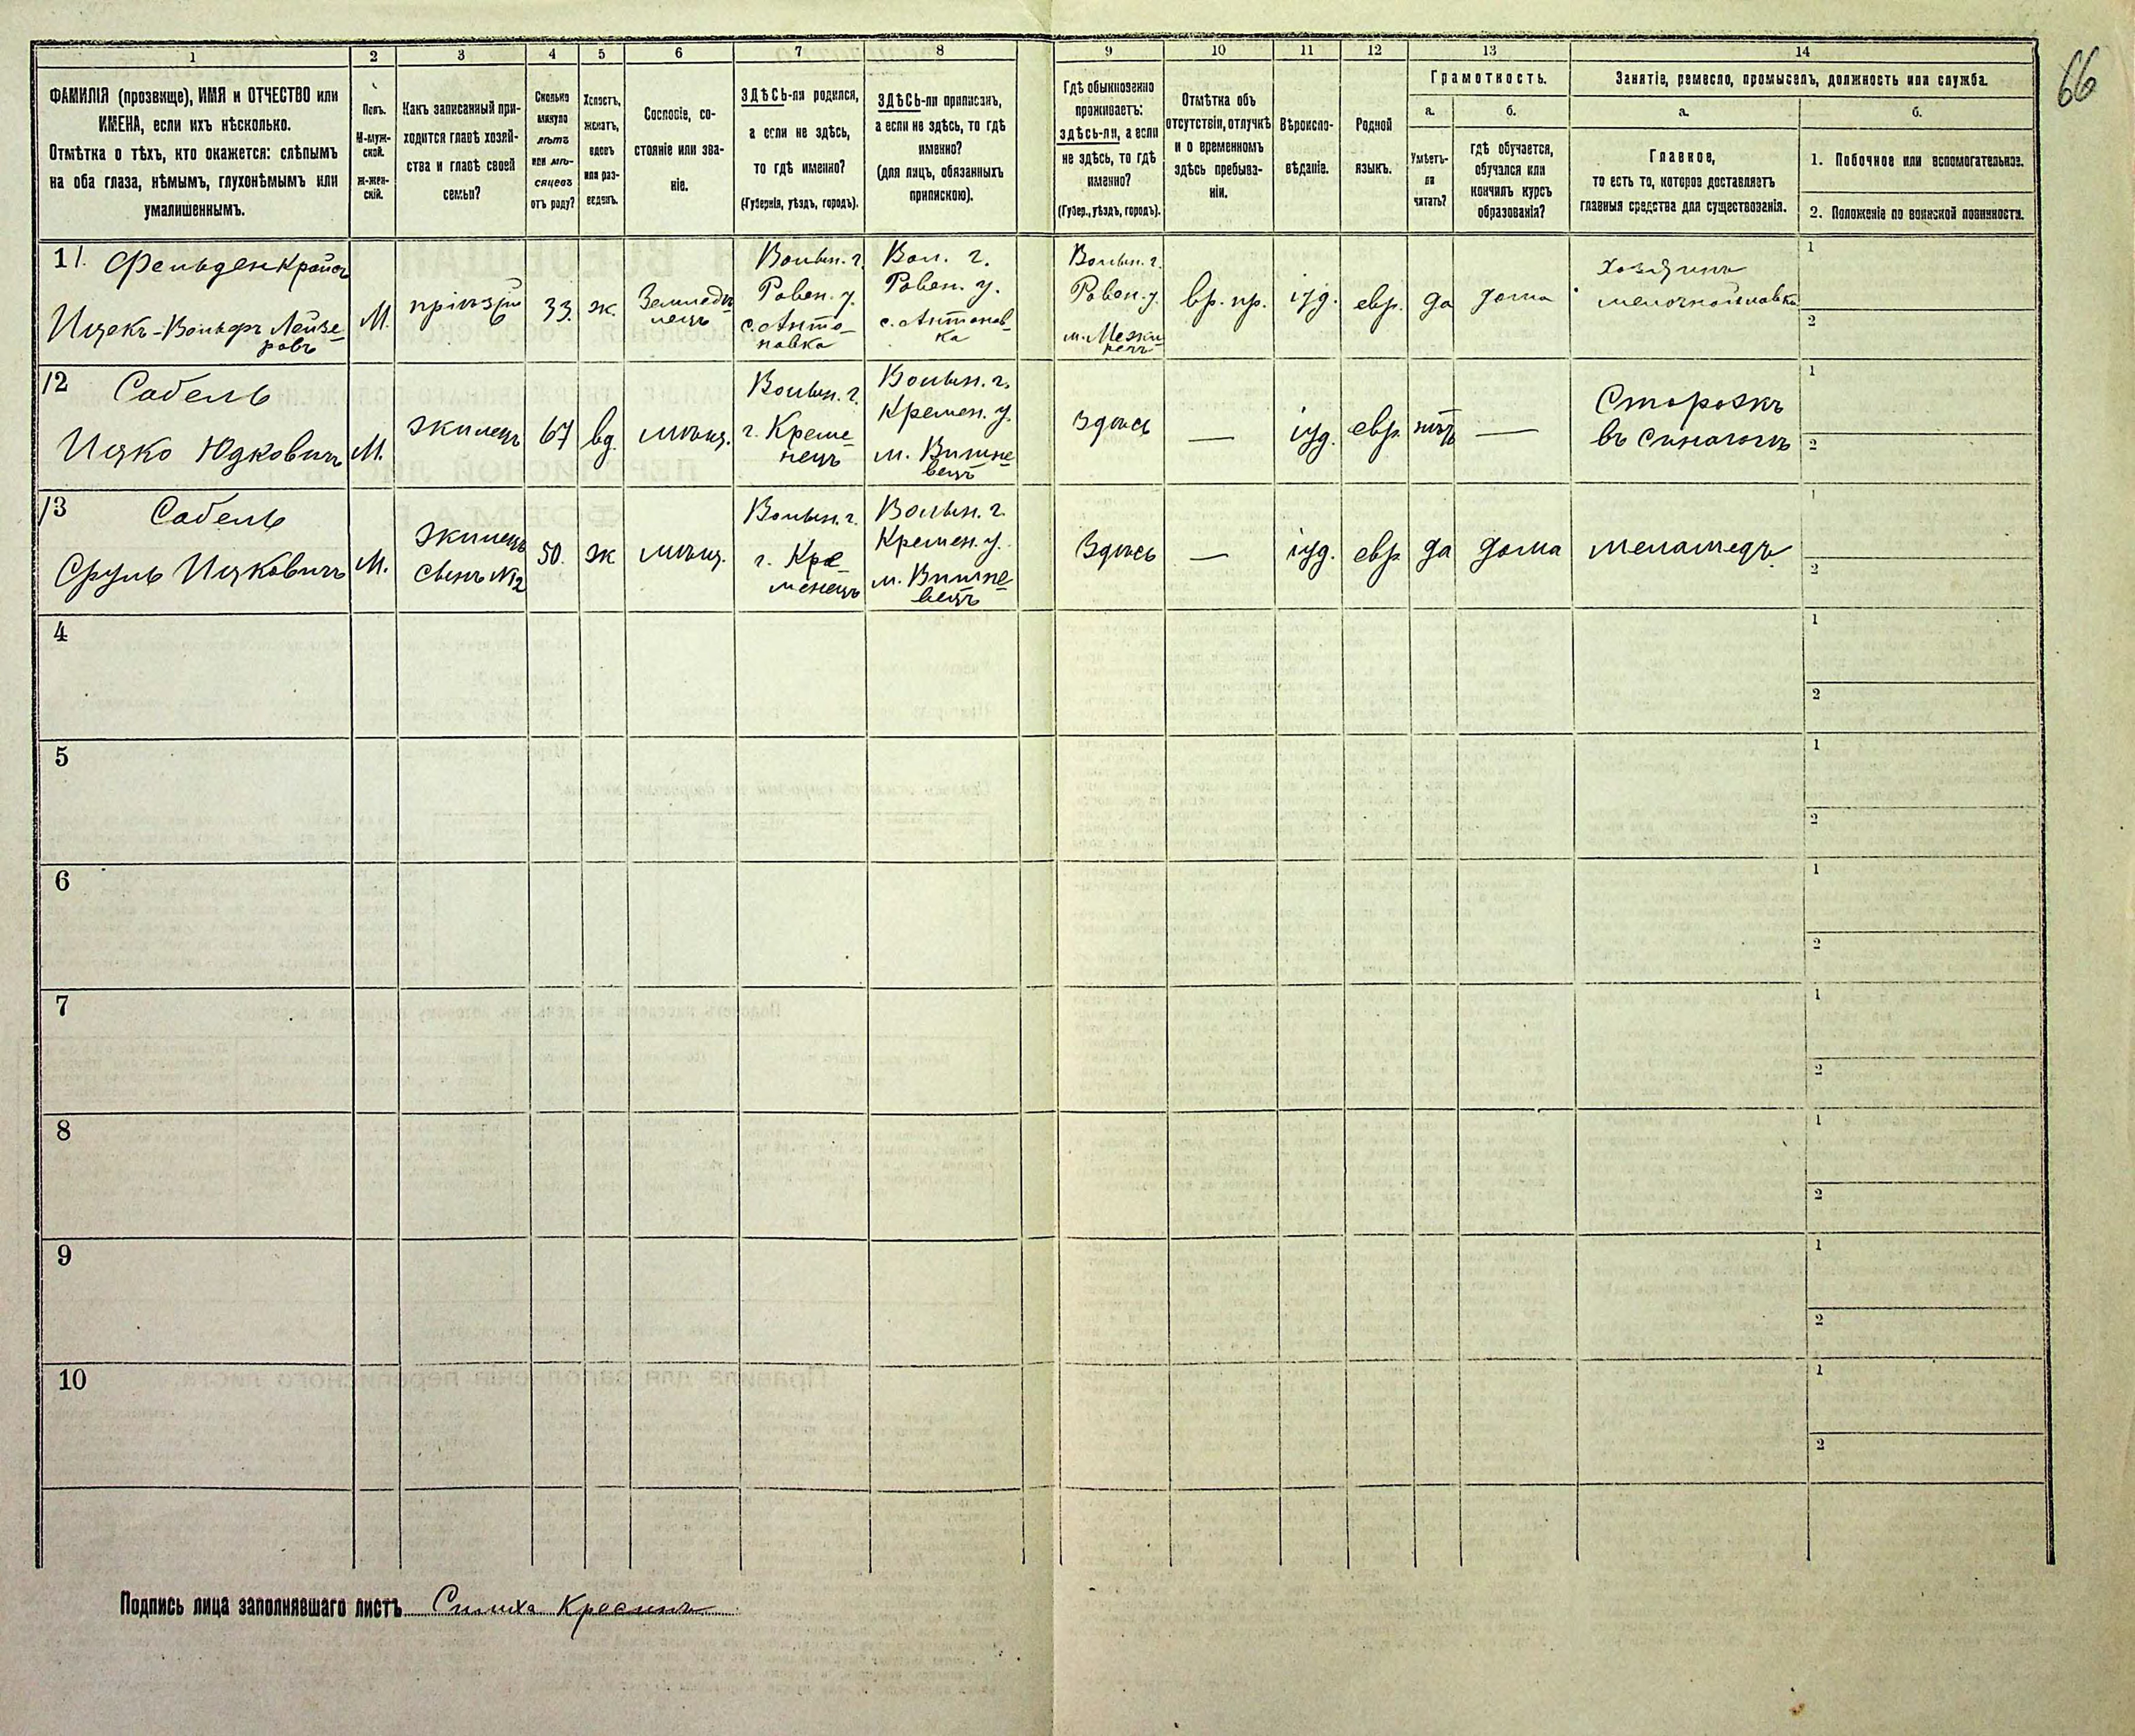 66
1 2 3 4 5 6 7 8 9 10 11 12 13 14
ФАМИЛІЯ (прозвище), ИМЯ и ОТЧЕСТВО или
ИМЕНА, если ихъ нѣсколько.
Отмѣтка о тѣхъ, кто окажется: слѣпымъ
на оба глаза, нѣмымъ, глухонѣмымъ или
умалишеннымъ.
Полъ.
М-муж-
ской.
Ж-жен-
скій.
Какъ записанный при-
ходится главѣ хозяй-
ства и главѣ своей
семьи?
Сколько
минуло
лѣтъ
или мѣ-
сяцевъ
отъ роду?
Холостъ,
женатъ,
вдовъ
или раз-
веденъ.
Сословіе, со-
стояніе или зва-
ніе.
ЗДѢСЬ-ли родился,
а если не здѣсь,
то гдѣ именно?
(Губернія, уѣздъ, городъ).
ЗДѢСЬ-ли приписанъ,
а если не здѣсь, то гдѣ
именно?
(для лицъ, обязанныхъ
припискою).
Гдѣ обыкновенно
проживаетъ:
здѣсь-ли, а если
не здѣсь, то гдѣ
именно?
(Губер., уѣздъ, городъ).
Отмѣтка объ
отсутствіи, отлучкѣ
и о временномъ
здѣсь пребыва-
ніи.
Вѣроиспо-
вѣданіе.
Родной
языкъ.
Грамотность.
а.
Умѣетъ-
ли
читать?
б.
гдѣ обучается,
обучался или
кончилъ курсъ
образованія?
Занятіе, ремесло, промыселъ, должность или служба.
а.
Главное,
то есть то, которое доставляетъ
главныя средства для существованія.
б.
1. Побочное или вспомогательное.
2. Положеніе по воинской повинности.
11. Фельденкрайзъ
Ицекъ-Вольфъ Лейзе-
ровъ
М.
пріѣзж
33.
ж.
Землед
лецъ
Волын. г.
Ровен. у.
с. Анто-
новка
Вол. г.
Ровен. у.
с. Антонов-
ка
Волын. г.
Ровен. у.
м. Межи-
речъ
вр. пр.
іуд.
евр.
да
дома
Хозяинъ
мелочной лавки
1
2
12 Собель
Ицко Юдковичъ
М.
жилецъ
67
вд
мѣщ.
Волын. г.
г. Креме-
нецъ
Волын. г.
Кремен. у.
м. Вишне-
вецъ
Здѣсь
—
іуд.
евр.
нѣтъ
—
Сторожъ
въ синагогѣ
1
2
13 Собель
Сруль Ицковичъ
М.
Жилецъ
сынъ №12
50.
ж
мѣщ.
Волын. г.
г. Кре-
менецъ
Волын. г.
Кремен. у.
м. Вишне-
вецъ
Здѣсь
—
іуд.
евр
да
дома
меламедъ
1
2
4
1
2
5
1
2
6
1
2
7
1
2
8
1
2
9
1
2
10
1
2
Подпись лица заполнявшаго листъ Симха